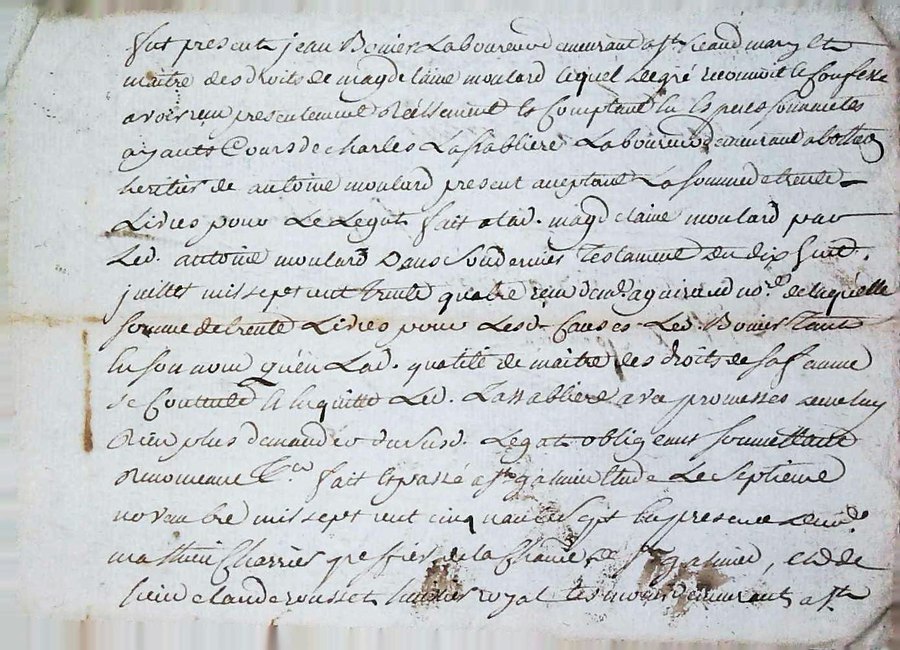 fut present jean Bonier Laboureur demeurant a st. et
maitre des droits de magdelaine moulard lequel de gré reconnoit et Confesse
avoir reçu presentement Reellement et Comptant en Especes sonnantes
ayants Cours de charles Lassabliere Laboureur demeurant a
heritier de antoine moulard present acceptant La somme de trente
Livres pour Le Legat fait a lad. magdelaine moulard par
Led. antoine moulard Dans son dernier testament du dix huit
juillet mil sept cent trente quatre reçu de me. no.re de laquelle
somme de trente Livres pour Lesd. Causes Led. Bonier tant
En son nom qu'en Lad. qualité de maitre des droits de sa femme
se Contente & En quitte Led. Lassabliere avec promesses de ne luy
Rien plus demander dud. Legat obligeant soumettant
Renonceant &a. fait et passé a st galmier Etude Le septieme
novembre mil sept cent cinquante sept En presence de
mathieu Charrier greffier de la st galmier, et de
sieur claude rousset huissier royal temoins demeurant a st